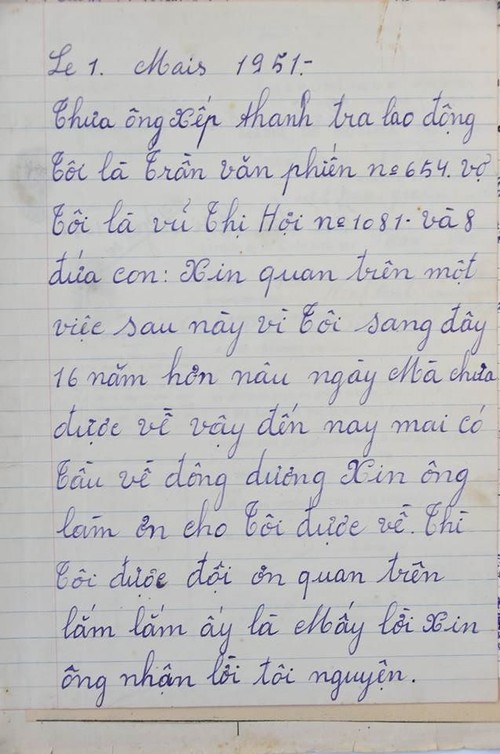 Le 1. Mais 1951.-
Thưa ông Xếp thanh tra lao động
Tôi là Trần văn phiến nº 654. vợ
Tôi là vũ Thị Hợi nº 1081. và 8
đứa con: Xin quan trên một
việc sau này vì Tôi sang đây
16 năm hơn nâu ngày Mà chưa
được về vậy đến nay mai có
Tầu về đông dương Xin ông
làm ơn cho Tôi được về. Thì
Tôi được đội ơn quan trên
lắm lắm ấy là Mấy lời Xin
ông nhận lời tôi nguyện.